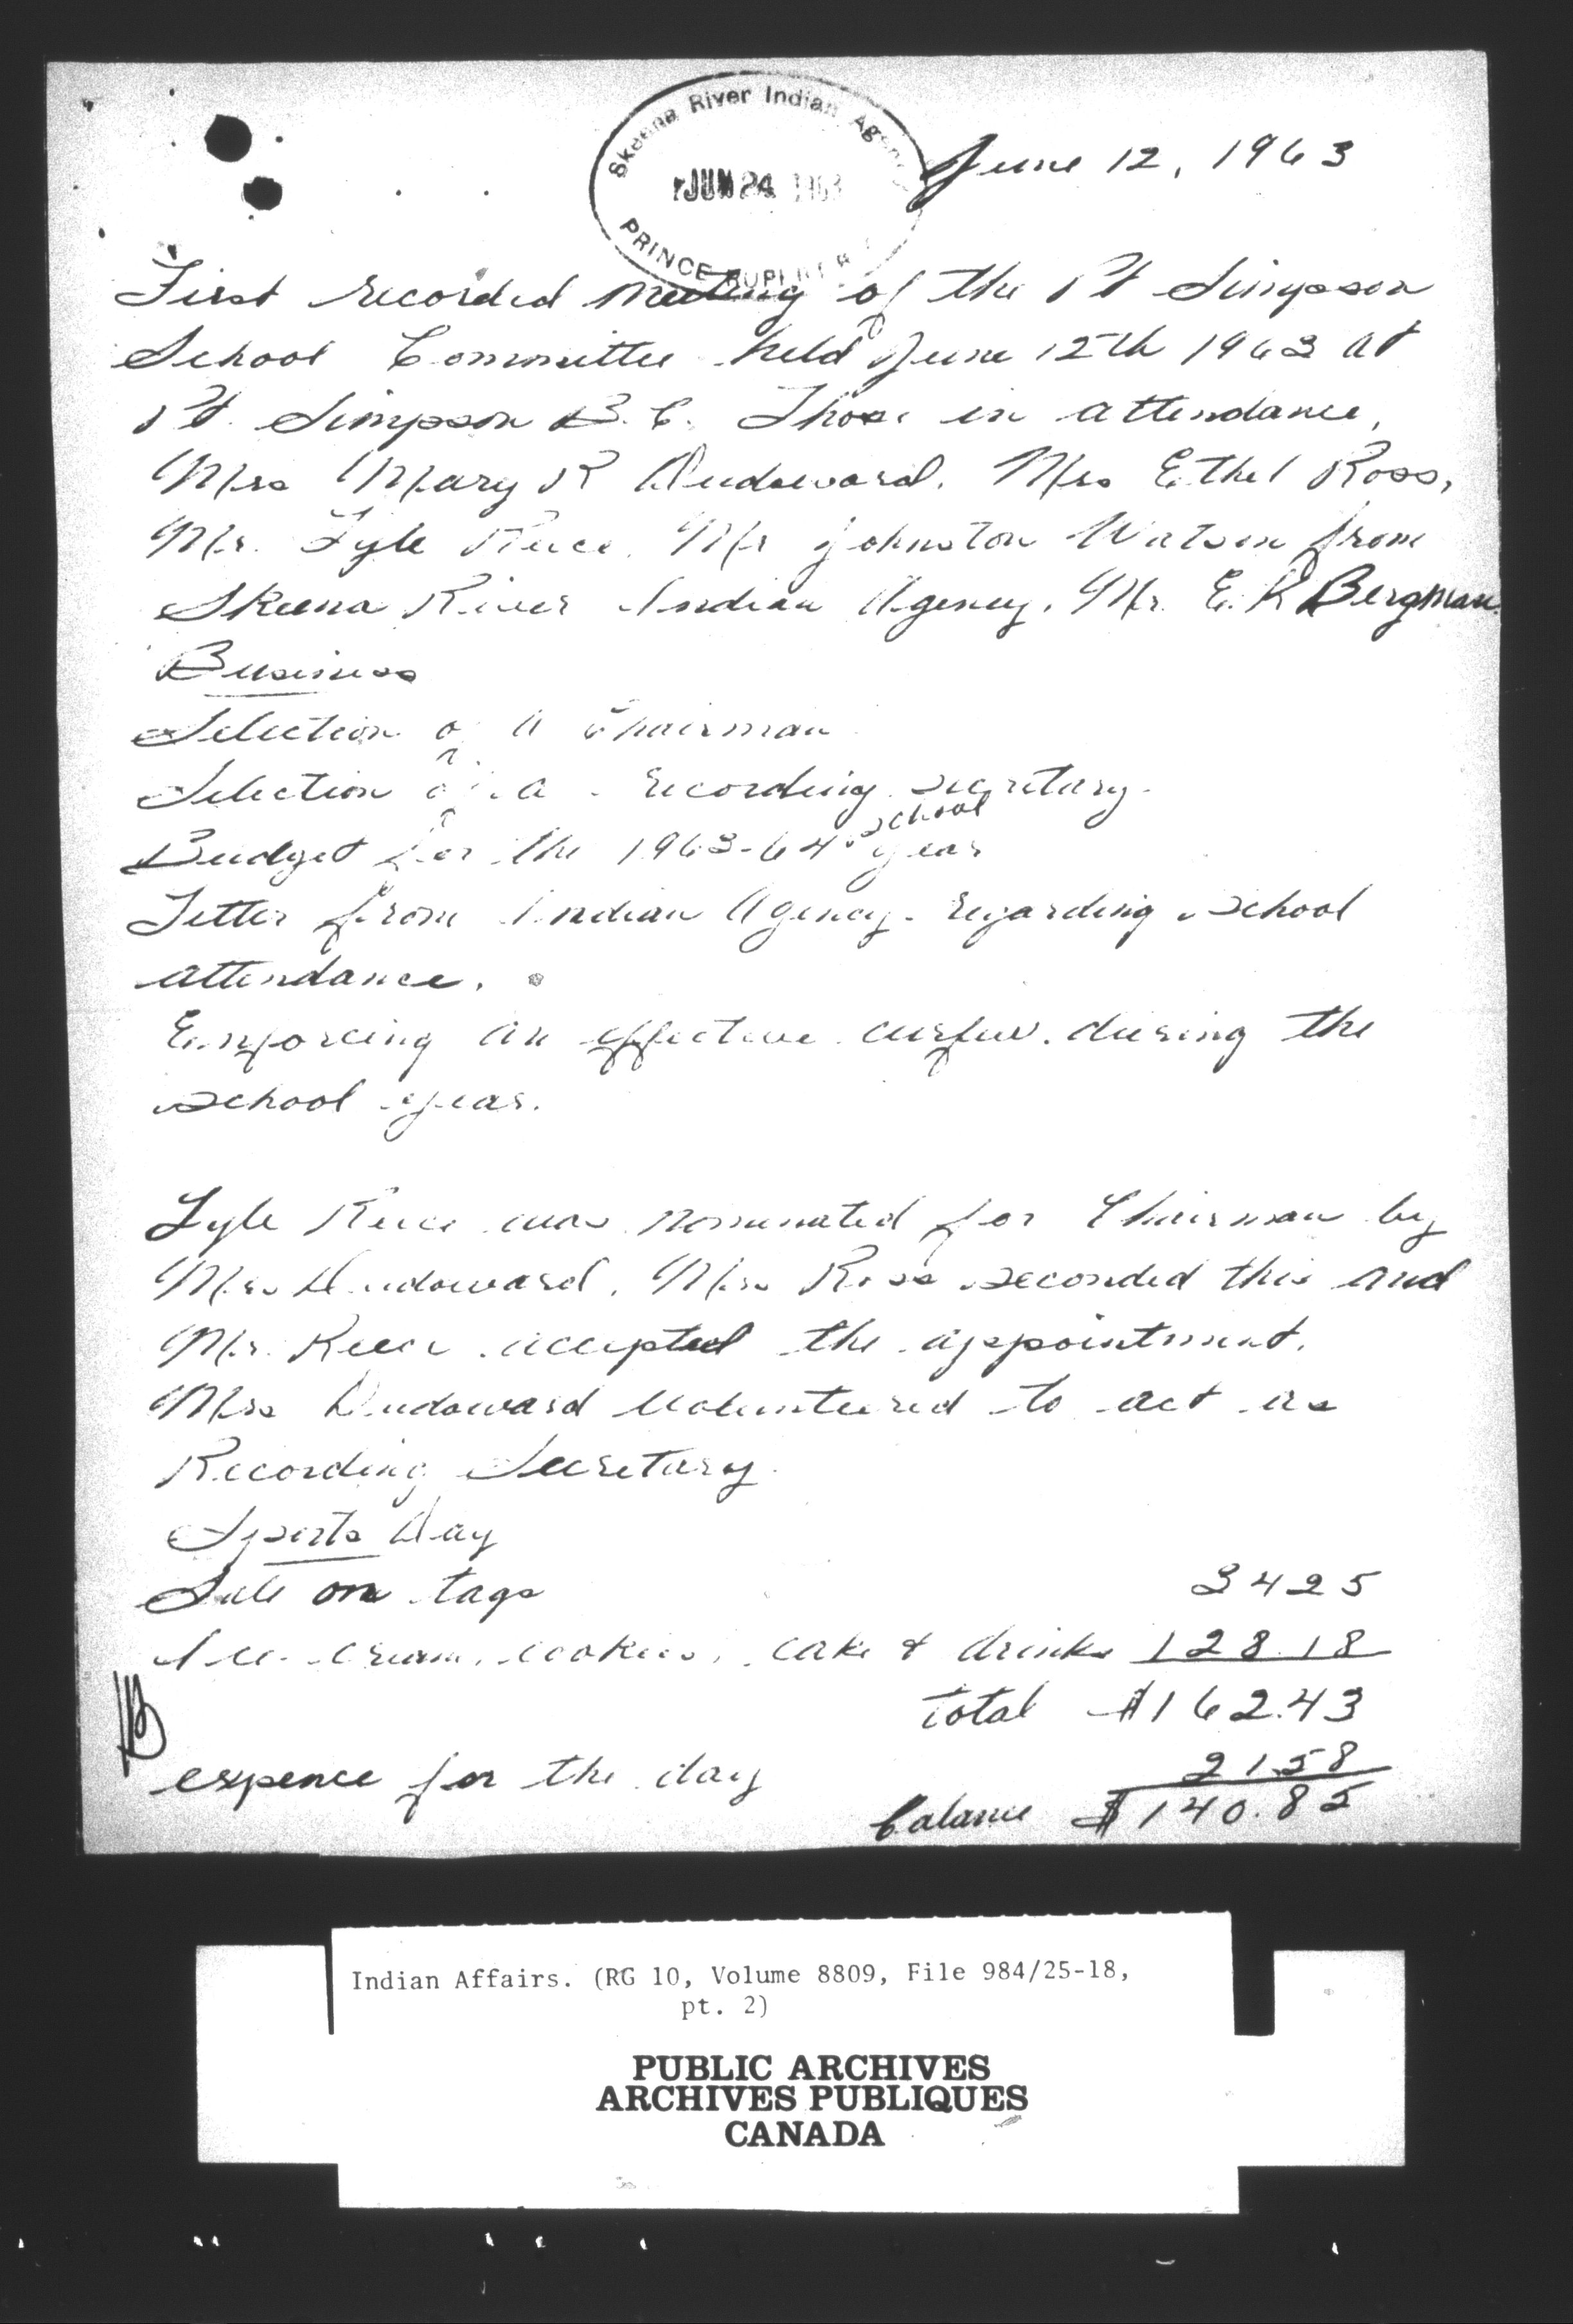 Skeena River Indian Agency
JUN 24 1963
PRINCE RUPERT B.C.
June 12, 1963
First recorded meeting of the Pt Simpson
School Committee held June 12th 1963 at
Pt. Simpson B.C. Those in attendance,
Mrs Mary R Dudoward. Mrs Ethel Ross,
Mr. Lyle Reece. Mr Johnston Watson from
Skeena River Indian Agency. Mr. E. R Bergman.
Business
Selection of a Chairman
Selection of a recording secretary.
Budget for the 1963-64 school year
Letter from Indian Agency regarding School
attendance.
Enforcing an effective curfew during the
School year.
Lyle Reece was nominated for Chairman by
Mrs Dudoward. Mrs Ross seconded this and
Mr. Reece accepted the appointment.
Mrs Dudoward volunteered to act as
Recording Secretary.
Sports Day
Sale on tags 3425
Ice cream, cookies, cake & drinks 128.18
Total $162.43
expence for the day 21.58
balance $140.85
Indian Affairs. (RG 10, Volume 8809, File 984/25-18,
pt. 2)
PUBLIC ARCHIVES
ARCHIVES PUBLIQUES
CANADA